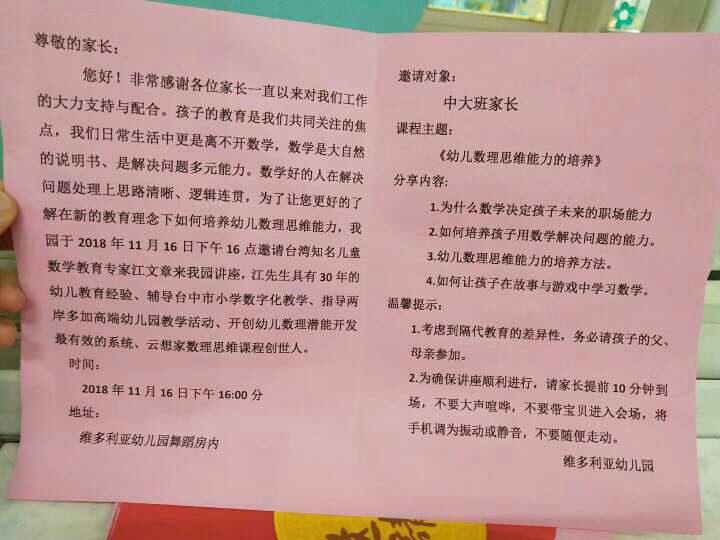 尊敬的家长：
您好！非常感谢各位家长一直以来对我们工作
的大力支持与配合。孩子的教育是我们共同关注的焦
点，我们日常生活中更是离不开数学，数学是大自然
的说明书、是解决问题多元能力。数学好的人在解决
问题处理上思路清晰、逻辑连贯，为了让您更好的了
解在新的教育理念下如何培养幼儿数理思维能力，我
园于 2018 年 11 月 16 日下午 16 点邀请台湾知名儿童
数学教育专家江文章来我园讲座，江先生具有 30 年的
幼儿教育经验、辅导台中市小学数字化教学、指导两
岸多加高端幼儿园教学活动、开创幼儿数理潜能开发
最有效的系统、云想家数理思维课程创世人。
时间：
2018 年 11 月 16 日下午 16:00 分
地址：
维多利亚幼儿园舞蹈房内
邀请对象：
中大班家长
课程主题：
《幼儿数理思维能力的培养》
分享内容:
1.为什么数学决定孩子未来的职场能力
2.如何培养孩子用数学解决问题的能力。
3.幼儿数理思维能力的培养方法。
4.如何让孩子在故事与游戏中学习数学。
温馨提示：
1.考虑到隔代教育的差异性，务必请孩子的父、
母亲参加。
2.为确保讲座顺利进行，请家长提前 10 分钟到
场，不要大声喧哗，不要带宝贝进入会场，将
手机调为振动或静音，不要随便走动。
维多利亚幼儿园